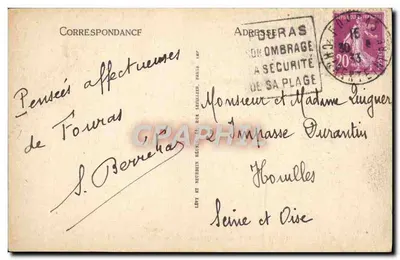 CORRESPONDANCE
ADRESSE
FOURAS
SON OMBRAGE
LA SECURITÉ
DE SA PLAGE
15
30
33
20
Pensées affectueuses
de Fouras
Monsieur et Madame
2 Impasse Durantin
Houilles
Seine et Oise